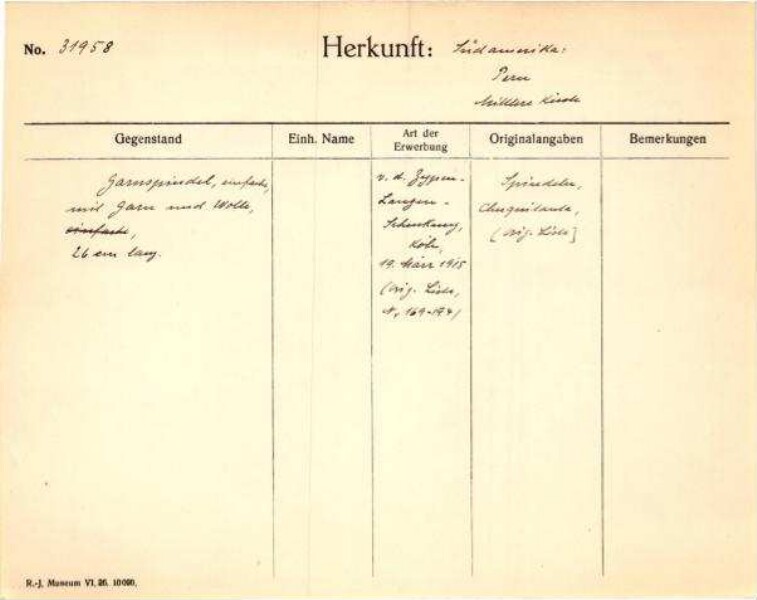 No. 31958
Herkunft: Südamerika:
Peru
Mittlere Küste
Gegenstand
Einh. Name
Art der
Erwerbung
Originalangaben
Bemerkungen
Garnspindel, einfache,
mit Garn und Wolle,
einfache,
26 cm lang.
v. d. Zypen-
Langen-
Schenkung,
Köln,
19. März 1915
(orig. Liste,
N. 169-174)
Spindeln,
(orig. Liste]
R.-J. Museum VI. 26. 10000.